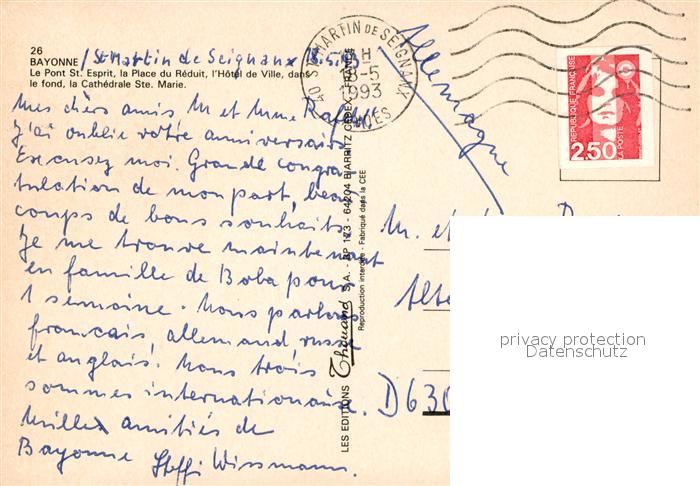 26
BAYONNE / St. Martin de Seignanx 18.5.93
Le Pont St. Esprit, la Place du Réduit, l'Hôtel de Ville, dans
le fond, la Cathédrale Ste. Marie.
Mes chers amis M et Mme
j'ai oublié votre anniversaire
Excusez moi. Grande congra
tulation de mon part, beau
coups de bons souhaits.
Je me trouve maintenant
en famille de Boba pour
1 semaine. Nous parlons
francais, allemand russe
et anglais. Nous trois
sommes internationaux.
Milles amitiés de
Bayonne Steffi Wissmann.
LES EDITIONS Thouand S.A. - BP 173 - 64204 BIARRITZ CEDEX - FRANCE
Reproduction interdite - Fabriqué dans la CEE
40 ST MARTIN DE SEIGNANX
H
18-5
1993
LANDES
Allemagne
REPUBLIQUE FRANÇAISE
LA POSTE
2,50
M. et
Alte
D630
privacy protection
Datenschutz